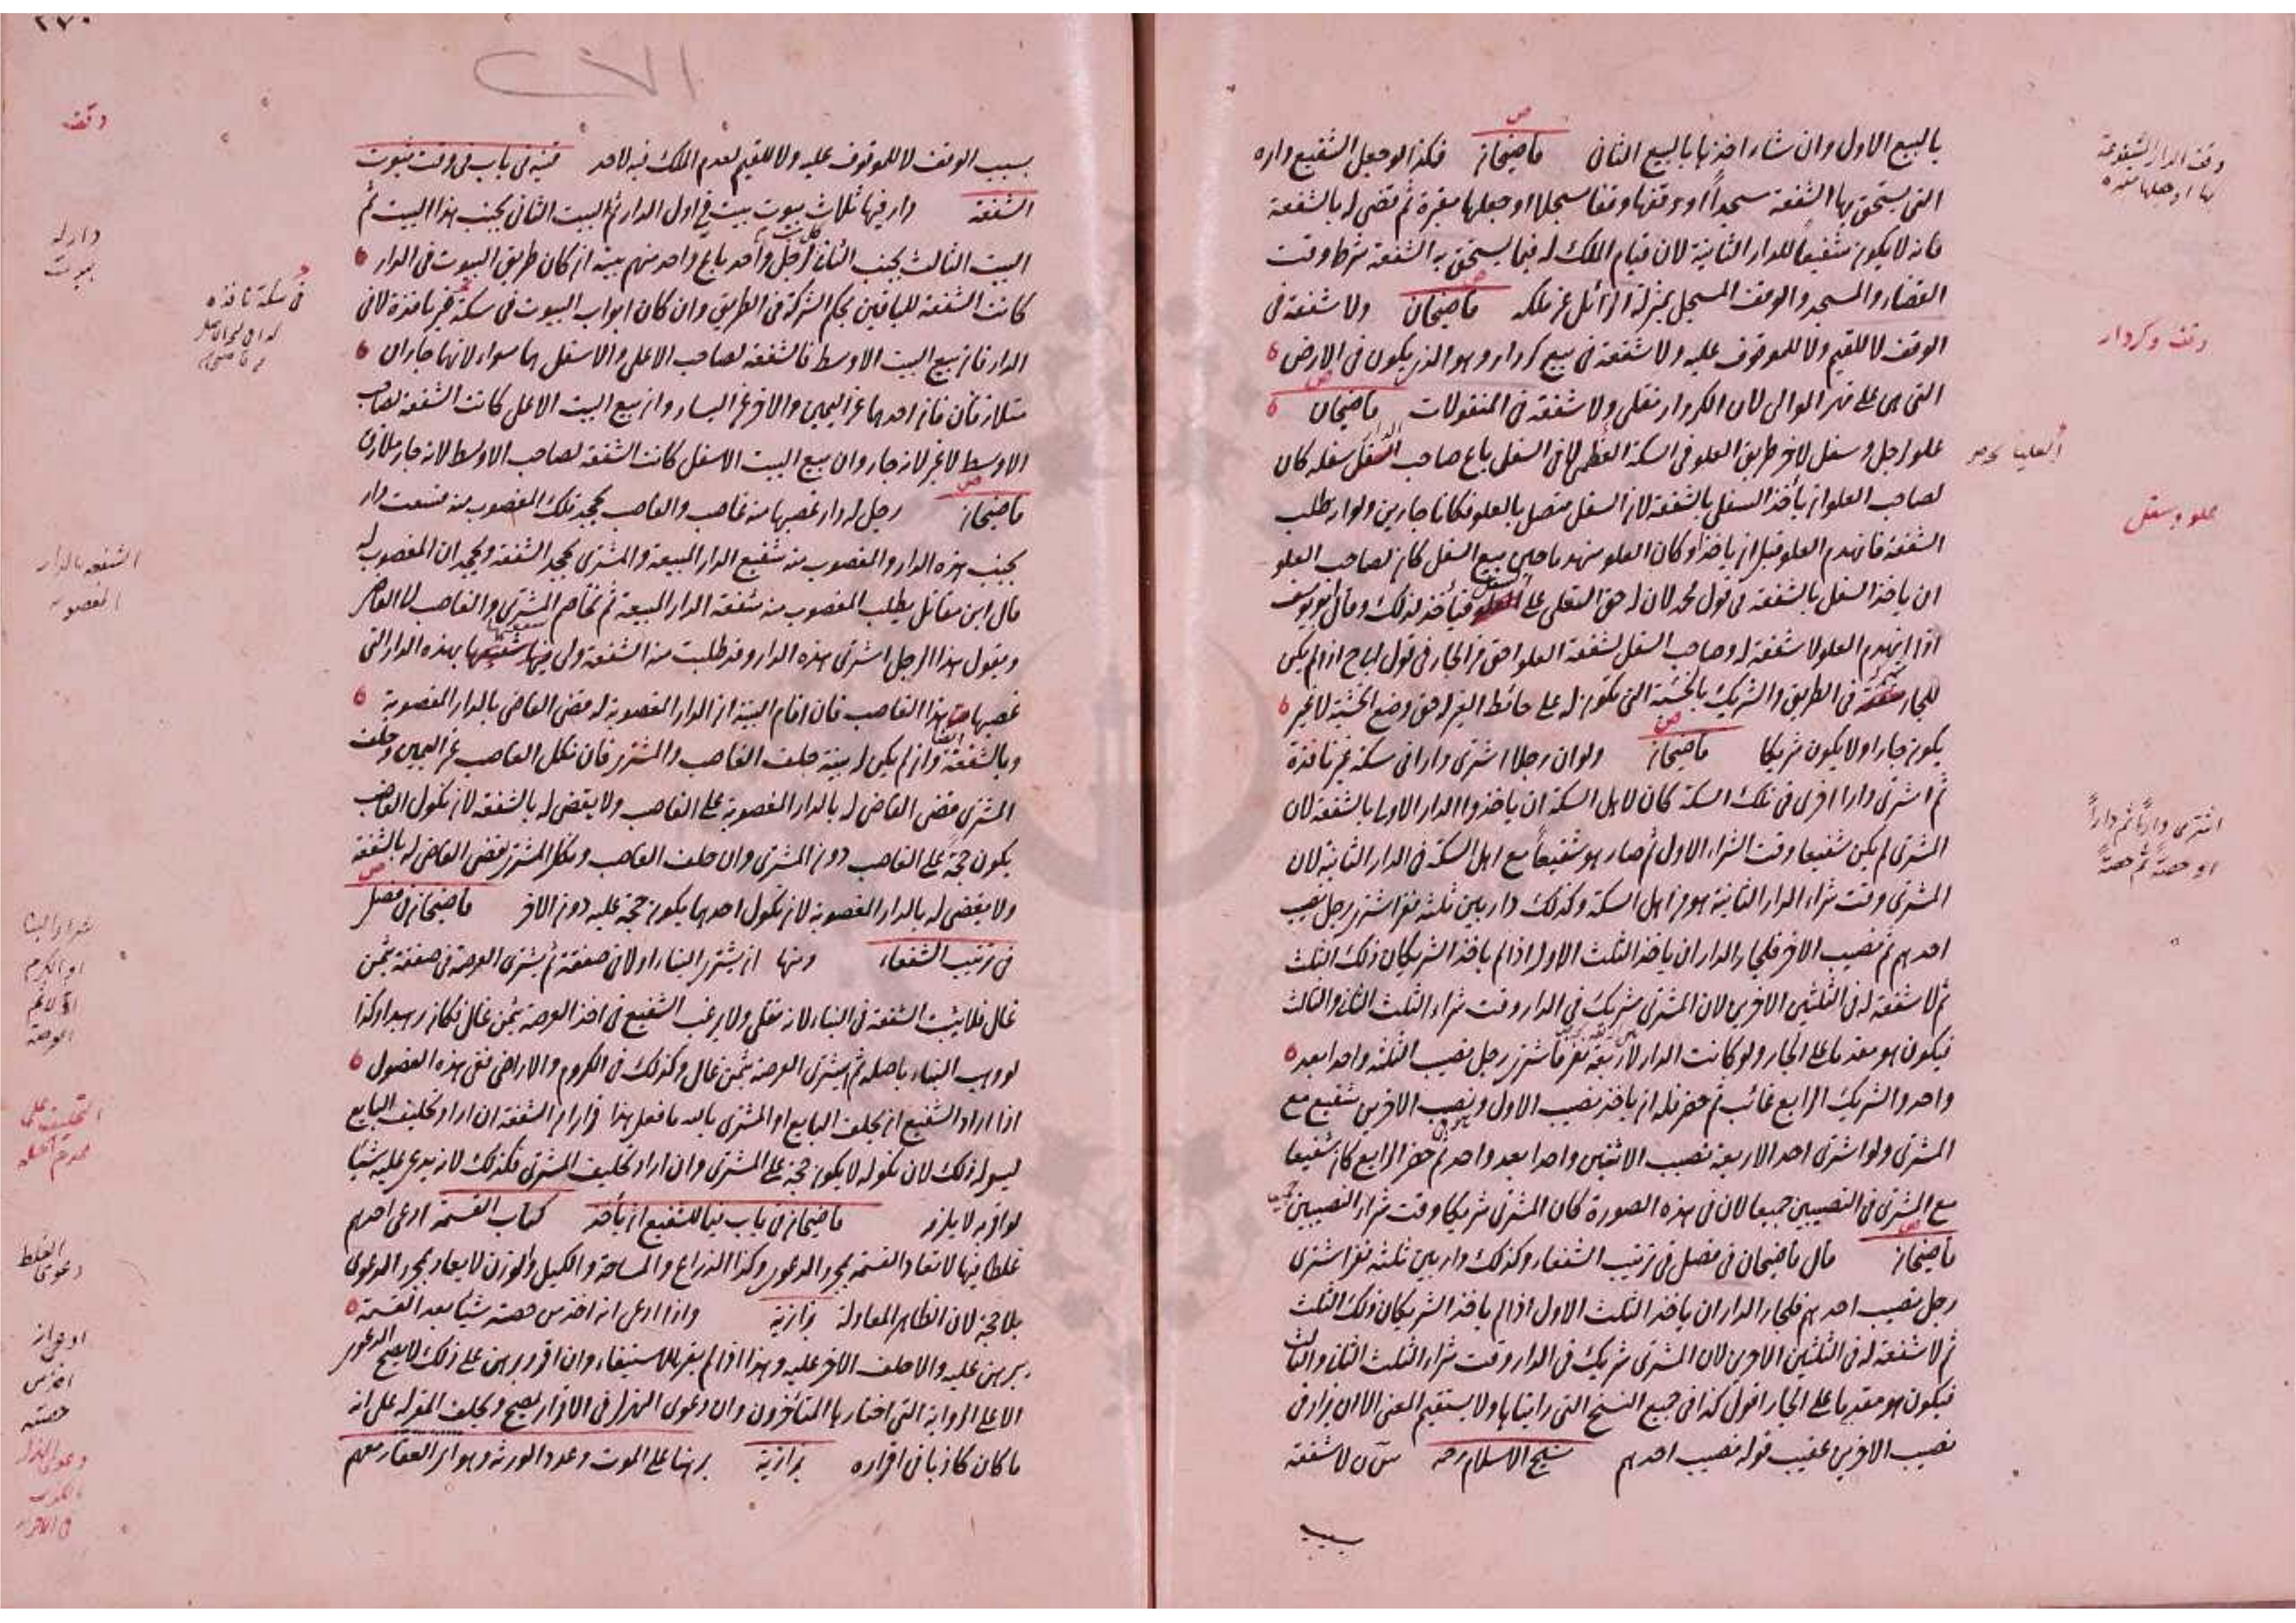 بالبيع الاول وان شاء اخذها بالبيع الثانى قاضيخان فكذا لو جعل الشفيع داره
التى يستحق بها الشفعة مسجداً او وقفها وقفا مسجلا او جعلها مقبرة ثم قضى له بالشفعة
فانه لا يكون شفيعا للدار الثانية لان قيام الملك له فيما يستحق به الشفعة شرط وقت
القضاء والمسجد والوقف المسجل بمنزلة الزائل عن ملكه قاضيخان ولا شفعة فى
الوقف لا للقيم ولا للموقوف عليه ولا شفعة فى بيع كردار وهو الذى يكون فى الارض
التى هى على نهر الموالى لان الكردار نقلى ولا شفعة فى المنقولات قاضيخان
علو لرجل وسفل لآخر طريق العلو فى السكة العظمى لا فى السفل باع صاحب السفل سفله كان
لصاحب العلو ان يأخذ السفل بالشفعة لان السفل متصل بالعلو فكانا جارين ولو اراد طلب
الشفعة فانهدم العلو قبل ان ياخذ او كان العلو منهدما حين بيع السفل كان لصاحب العلو
ان ياخذ السفل بالشفعة فى قول محمد لان له حق التعلى على السفل فيأخذ لذلك وقال ابو يوسف
اذا انهدم العلو لا شفعة له وصاحب السفل لشفعة العلو احق من الجار فى قول اذا لم يكن
للجار شركة فى الطريق والشريك بالخشبة التى تكون له على حائط الغير له حق وضع الخشبة لا غير
يكون جارا ولا يكون شريكا قاضيخان ولو ان رجلا اشترى دارا فى سكة غير نافذة
ثم اشترى دارا اخرى فى تلك السكة كان لاهل السكة ان ياخذوا الدار الاولى بالشفعة لان
المشترى لم يكن شفيعا وقت الشراء الاول ثم صار هو شفيعاً مع اهل السكة فى الدار الثانية لان
المشترى وقت شراء الدار الثانية هو من اهل السكة وكذلك دار بين ثلثة نفر اشترى رجل نصيب
احدهم ثم نصيب الآخر فلجار الدار ان ياخذ الثلث الاول اذا لم ياخذ الشريكان ذلك الثلث
ثم لا شفعة له فى الثلثين الاخرين لان المشترى شريك فى الدار وقت شراء الثلث الثانى والثالث
فيكون هو مقدما على الجار ولو كانت الدار لاربعة نفر فاشترى رجل نصيب الثلثة واحدا بعد
واحد والشريك الرابع غائب ثم حضر فله ان ياخذ نصيب الاول ونصيب الاخرين شفيع مع
المشترى ولو اشترى احد الاربعة نصيب الاثنين واحدا بعد واحد ثم حضر الرابع كان شفيعا
مع المشترى فى النصيبين جميعا لان فى هذه الصورة كان المشترى شريكا وقت شراء النصيبين
قاضيخان قال قاضيخان فى فصل فى ترتيب الشفعاء وكذلك دار بين ثلثة نفر اشترى
رجل نصيب احدهم فلجار الدار ان ياخذ الثلث الاول اذا لم ياخذ الشريكان ذلك الثلث
ثم لا شفعة له فى الثلثين الاخرين لان المشترى شريك فى الدار وقت شراء الثلث الثانى والثالث
فيكون هو مقدما على الجار اقول كذا فى جميع النسخ التى رايناها ولا يستقيم المعنى الا ان يزاد فى
نصيب الاخرين عقيب قوله نصيب احدهم شيخ الاسلام رحمه لا شفعة
بسبب
وقف الدار المشفوعة
بها او جعلها مقبرة
وقف وكردار
علو وسفل
اشترى داراً ثم داراً
او حصةً ثم حصةً
٢٧٠
بسبب الوقف لا للموقوف عليه ولا للقيم لعدم الملك فيه لاحد قنية فى باب فى وقت ثبوت
الشفعة دار فيها ثلاث بيوت بيت فى اول الدار ثم البيت الثانى بجنب هذا البيت ثم
البيت الثالث بجنب الثانى كل بيت لرجل واحد باع واحد منهم بيته ان كان طريق البيوت فى الدار
كانت الشفعة للباقين بحكم الشركة فى الطريق وان كان ابواب البيوت فى سكة غير نافذة لا فى
الدار فان بيع البيت الاوسط فالشفعة لصاحب الاعلى والاسفل هما سواء لانهما جاران
متلازقان فان احدهما عن اليمين والاخر عن اليسار وان بيع البيت الاعلى كانت الشفعة لصاحب
الاوسط لا غير لانه جار وان بيع البيت الاسفل كانت الشفعة لصاحب الاوسط لانه جار ملازق
قاضيخان رجل له دار غصبها منه غاصب والغاصب يجحد تلك المغصوب منه فبيعت دار
بجنب هذه الدار والمغصوب منه شفيع الدار المبيعة والمشترى يجحد الشفعة ويجحد ان المغصوب له
قال ابن مقاتل يطلب المغصوب منه شفعة الدار المبيعة ثم يخاصم المشترى والغاصب الى القاضى
ويقول هذا الرجل اشترى هذه الدار وقد طلبت منه الشفعة ولى فيها شفعة بهذه الدار التى
غصبها هذا الغاصب فان اقام البينة ان الدار المغصوبة له قضى القاضى بالدار المغصوبة
وبالشفعة ايضا وان لم يكن له بينة حلف الغاصب والمشترى فان نكل الغاصب عن اليمين وحلف
المشترى قضى القاضى له بالدار المغصوبة على الغاصب ولا يقضى له بالشفعة لان نكول الغاصب
يكون حجة على الغاصب دون المشترى وان حلف الغاصب ونكل المشترى يقضى القاضى له بالشفعة
ولا يقضى له بالدار المغصوبة لان نكول احدهما يكون حجة عليه دون الآخر قاضيخان فى فصل
فى ترتيب الشفعاء ومنها ان يشترى البناء اولا فى صفقة ثم يشترى العرصة فى صفقة بثمن
غال فلا يثبت الشفعة فى البناء لانه نقلى ولا يرغب الشفيع فى اخذ العرصة بثمن غال وكذا
لو وهب البناء باصله ثم يشترى العرصة بثمن غال وكذلك فى الكروم والاراضى ففى هذه الفصول
اذا اراد الشفيع ان يحلف البايع او المشترى بالله ما فعل هذا فرارا من الشفعة ان اراد تحليف البايع
ليس له ذلك لان نكوله لا يكون حجة على المشترى وان اراد تحليف المشترى فكذلك لانه يدعى عليه شيئا
لو اقر به لا يلزمه قاضيخان فى باب فيما للشفيع ان يأخذ كتاب القسمة ادعى احدهم
غلطا فيها لا تعاد القسمة بمجرد الدعوى وكذا الذراع والمساحة والكيل والوزن لا يعاد بمجرد الدعوى
بلا حجة لان الظاهر المعادلة بزازية واذا ادعى انه اخذ من حصته شيئا بعد القسمة
يبرهن عليه والا حلف الاخر عليه وهذا اذا لم يقر بالاستيفاء وان اقر وبرهن على ذلك لا يصح الدعوى
الا على الرواية التى اختارها المتأخرون وان دعوى الهزل فى الاقرار يصح ويحلف المقر له على انه
ما كان كاذبا فى اقراره بزازية برهنا على الموت وعدد الورثة العقار معهم
وقف
دار له
بيوت
فى سكة نافذة
الشفعة بالدار
المغصوبة
شراء البناء
او الكرم
اولا ثم
العرصة
التحليف على
الغلط
دعوى
ادعى انه
اخذ من
حصته
دعوى الهزل